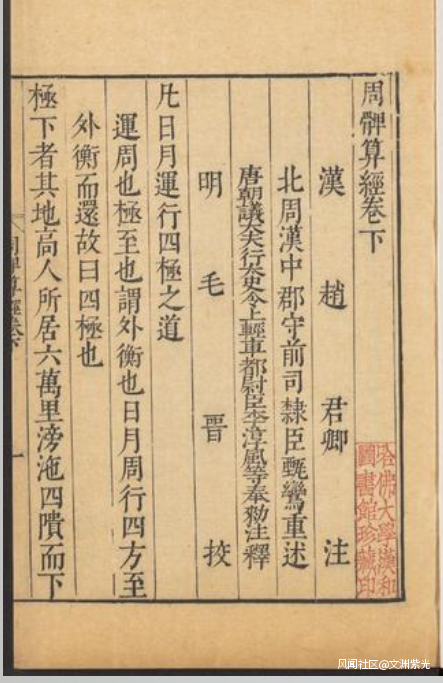 周髀算經卷下
漢趙君卿注
北周漢中郡守前司隸臣甄鸞重述
唐朝議大夫行太史令上輕車都尉臣李淳風等奉勑注釋
明毛晋挍
凡日月運行四極之道
運周也極至也謂外衡也日月周行四方至
外衡而還故曰四極也
極下者其地高人所居六萬里滂沲四隤而下
周髀算經卷下
一
哈佛大學漢和
圖書館珍藏印
风闻社区@文洲紫光